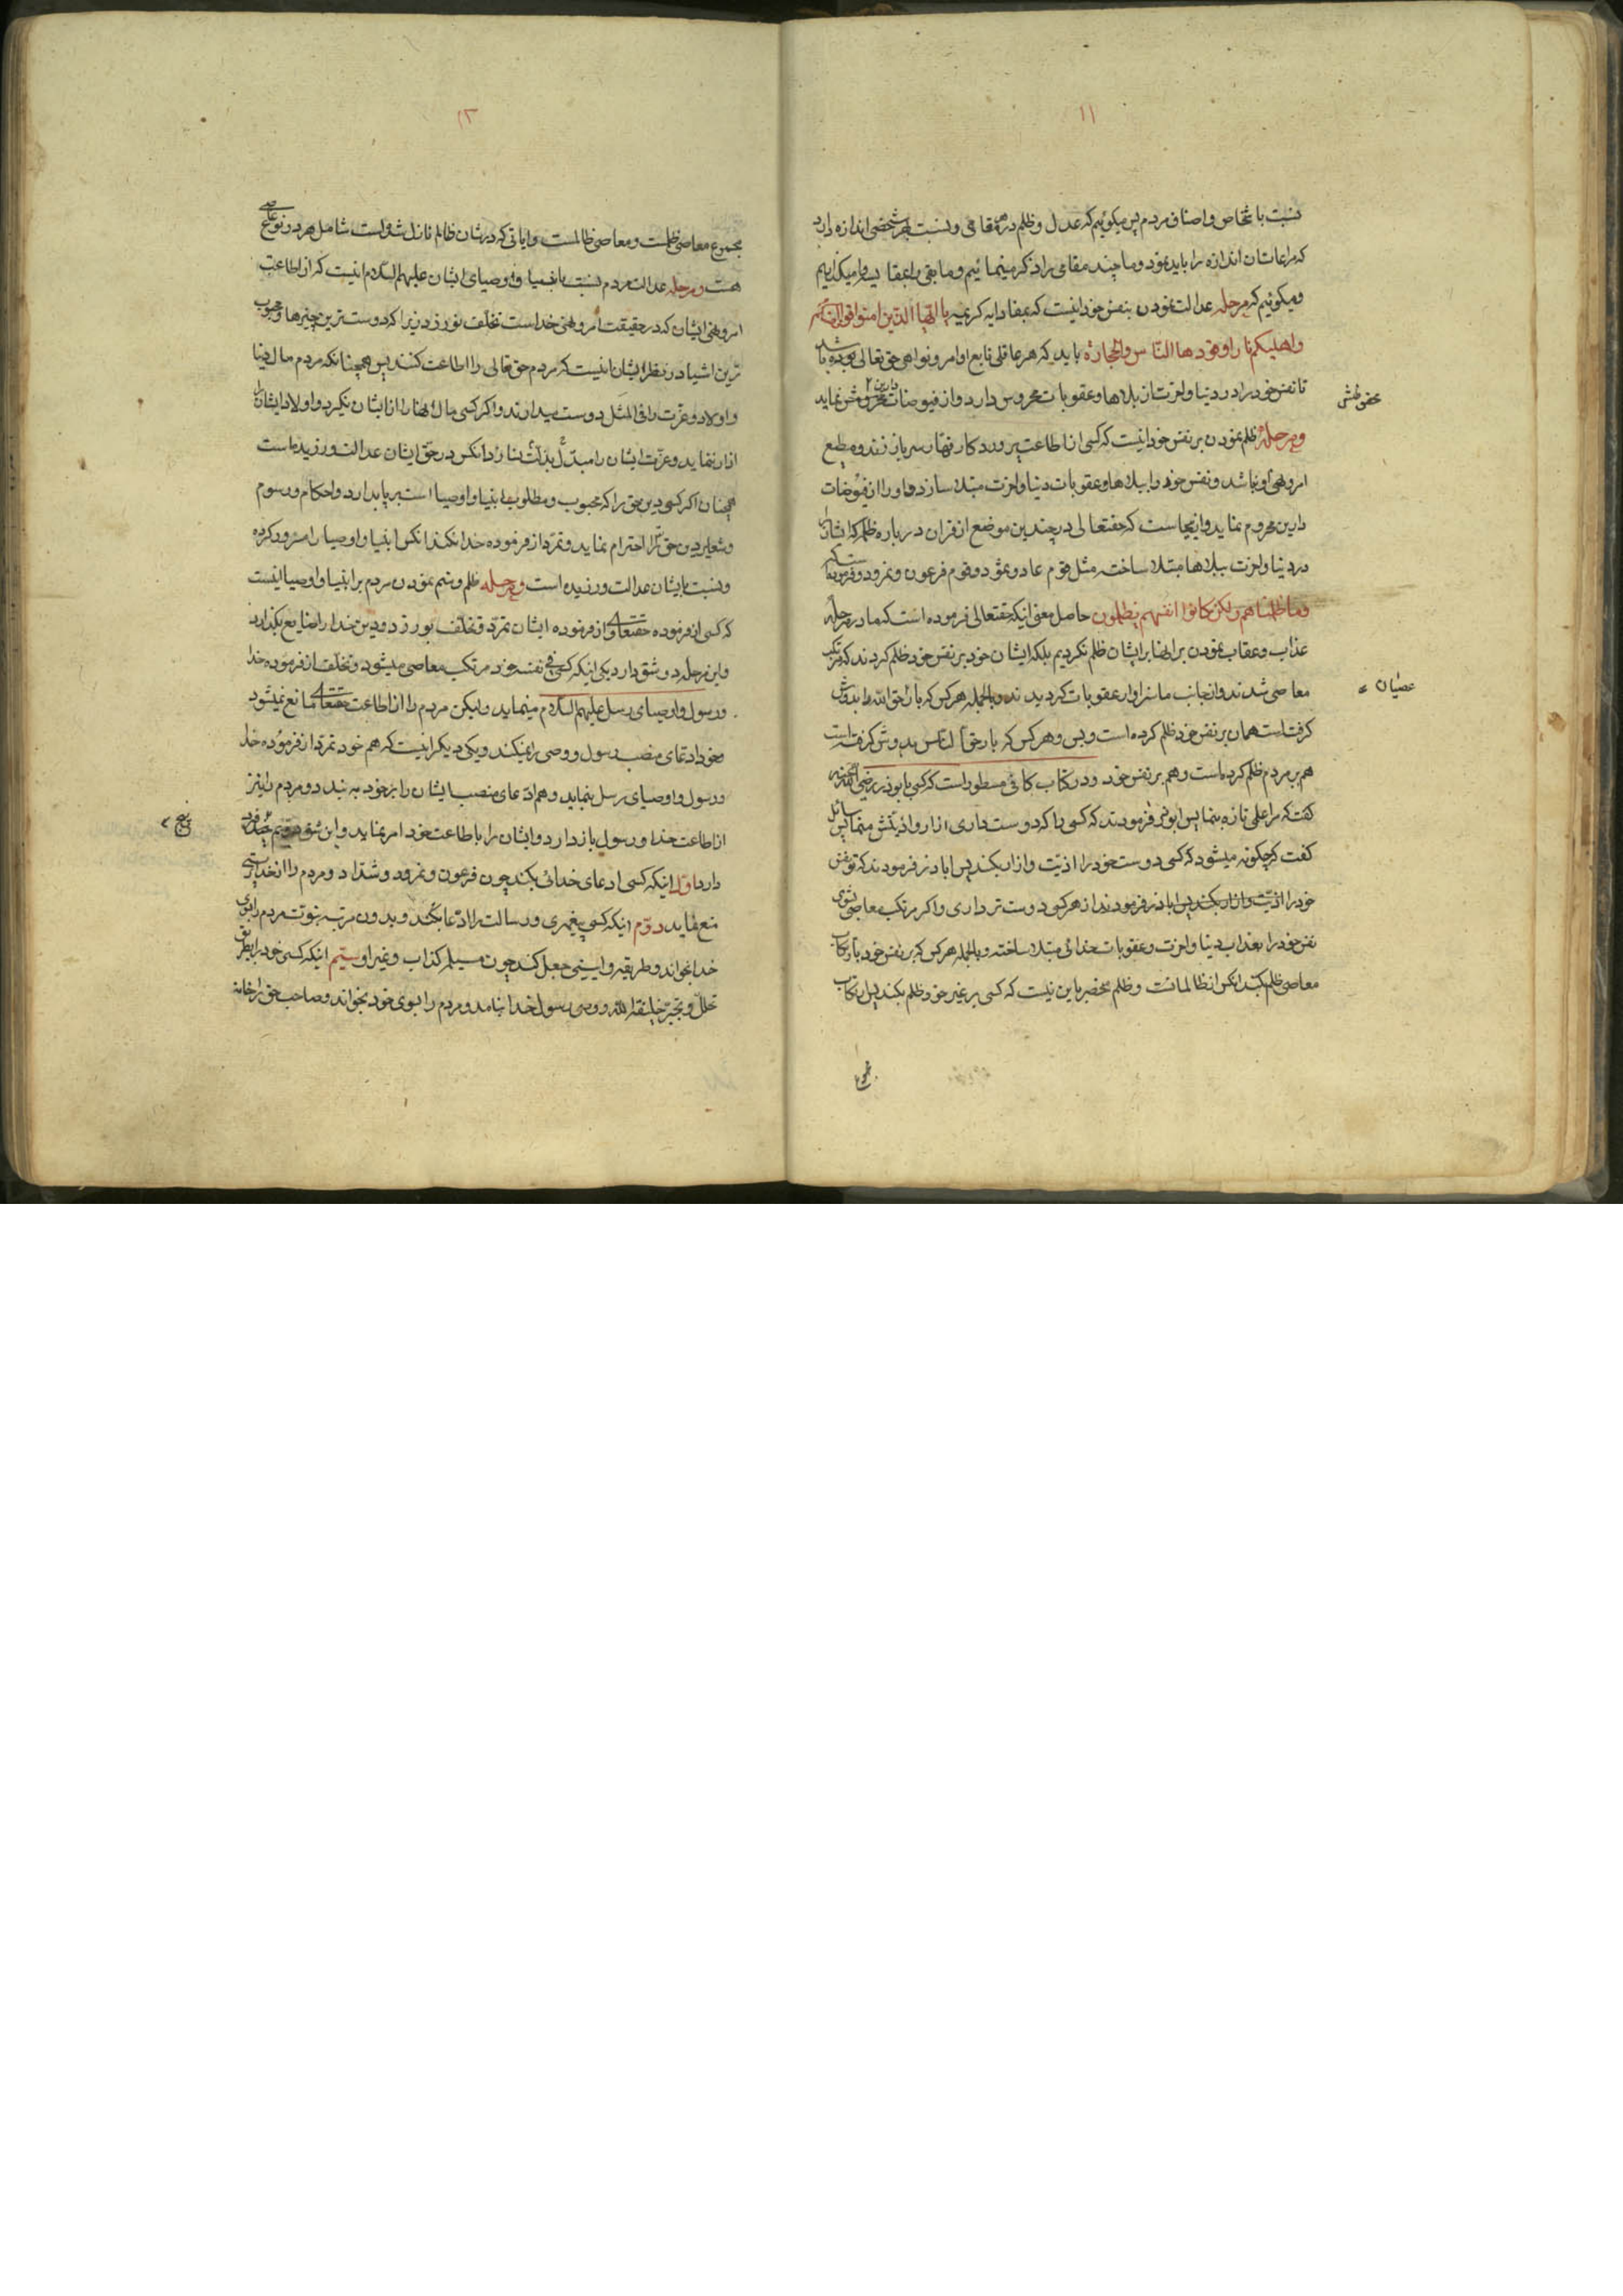 ۱۱
نسبت باشخاص واصناف مردم پس میکوئیم که عدل وظلم در هر مقامی ونسبت بهر شخصی اندازه دارد
که مراعات ان اندازه را باید نمود وما چند مقامی را ذکر مینمائیم ومابقی را بمقایسه وامیکذاریم
ومیکوئیم که مرحله عدالت نمودن بنفس خود اینست که بمفاد ایه کریمه یا ایها الذین امنوا قوا انفسکم
واهلیکم نارا وقودها الناس والحجارة باید که هر عاقلی تابع اوامر ونواهی حق تعالی بوده باشد
تا نفس خود را در دنیا واخرت از بلاها وعقوبات محروس دارد واز فیوضات دارین محروش ننماید
محفوظش
ومرحله ظلم نمودن بر نفس خود اینست که کسی از اطاعت پروردکار قهار سر باز زند ومطیع
امر ونهی او نباشد ونفس خود را ببلاها وعقوبات دنیا واخرت مبتلا سازد واو را از فیوضات
دارین محروم نماید وازینجاست که حقتعالی در چندین موضع از قران در باره ظلمه که ایشانرا
در دنیا واخرت ببلاها مبتلا ساخته مثل قوم عاد وثمود وقوم فرعون ونمرود فرموده است که
وما ظلمناهم ولکن کانوا انفسهم یظلمون حاصل معنی اینکه حقتعالی فرموده است که ما در مرحله
عذاب وعقاب نمودن بر انها بر ایشان ظلم نکردیم بلکه ایشان خود بر نفس خود ظلم کردند که مرتکب
معاصی شدند واز جانب ما سزاوار عقوبات کردیدند وبالجمله هر کس که بار حق الله را بدوش
عصیان
کرفته است همان بر نفس خود ظلم کرده است وبس وهر کس که بار حق الناس بدوش کرفته است
هم بر مردم ظلم کرده است وهم بر نفس خود ودر کتاب کافی مسطور است که کسی بابوذر رضی الله عنه
کفت که مرا علمی تازه بنما پس ابوذر فرمودند که کسی را که دوست داری ازار واذیتش منما پس سائل
کفت که چکونه میشود که کسی دوست خود را اذیت وازار بکند پس اباذر فرمودند که تو نفس
خود را اذیت وازار بکند پس اباذر فرمودند از هر کسی دوست تر داری واکر مرتکب معاصی بشوی
نفس خود را بعذاب دنیا واخرت وعقوبات خدائی مبتلا ساخته وبالجمله هر کس که بر نفس خود بارتکاب
معاصی ظلم بکند انکس از ظالمانست وظلم منحصر باین نیست که کسی بر غیر خود ظلم بکند پس ارتکاب
مجموع
۱۲
مجموع معاصی ظلمست ومعاصی ظالمست وایاتی که در شان ظالم نازل شده است شامل هر دو نوع
هست ومرحله عدالت مردم نسبت بانبیا واوصیای ایشان علیهم السلام اینست که از اطاعت
امر ونهی ایشان که در حقیقت امر ونهی خداست تخلف نورزد زیرا که دوست ترین چیزها ومحبوب
ترین اشیا در نظر ایشان اینست که مردم حق تعالی را اطاعت کنند پس همچنانکه مردم مال دنیا
واولاد وعزت را فی المثل دوست میدارند واکر کسی مال انها را از ایشان نکیرد واولاد ایشانرا
ازار ننماید وعزت ایشان را مبدل بذلت نسازد انکس در حق ایشان عدالت ورزیده است
همچنان اکر کسی دین حق را که محبوب ومطلوب انبیا واوصیا است برپا بدارد واحکام ورسوم
وشعایر دین حق را احترام نماید وتمرد از فرموده خدا نکند انکس انبیا واوصیا را مسرور کرده
ونسبت بایشان عدالت ورزیده است ومرحله ظلم وستم نمودن مردم بر انبیا واوصیا اینست
که کسی از فرموده حقتعالی واز فرموده ایشان تمرد وتخلف بورزد ودین خدا را ضایع بکذارد
واین مرحله دو شق دارد یکی اینکه کسی فی نفسه خود مرتکب معاصی میشود وتخلف از فرموده خدا
ورسول واوصیای رسل علیهم السلام مینماید ولیکن مردم را از اطاعت حقتعالی مانع نمیشود
وخود ادعای منصب رسول ووصی را نمیکند ویکی دیکر اینست که هم خود تمرد از فرموده خدا
ورسول واوصیای رسل بنماید وهم ادعای منصب ایشان را بر خود به بندد ومردم را نیز
از اطاعت خدا ورسول باز دارد وایشان را باطاعت خود امر بنماید واین شق دویم چند فرد
پنج
دارد اول اینکه کسی ادعای خدائی بکند چون فرعون ونمرود وشداد ومردم را از خداپرستی
منع نماید دوم اینکه کسی پیغمبری ورسالت را ادعا بکند وبدون مرتبه نبوت مردم را بسوی
خدا بخواند وطریقه وایینی جعل کند چون مسیلمه کذاب وغیر او سیم اینکه کسی خود را بطریق
تغلب وتجبر خلیفة الله ووصی رسول خدا بنامد ومردم را بسوی خود بخواند وصاحب حق را خانه